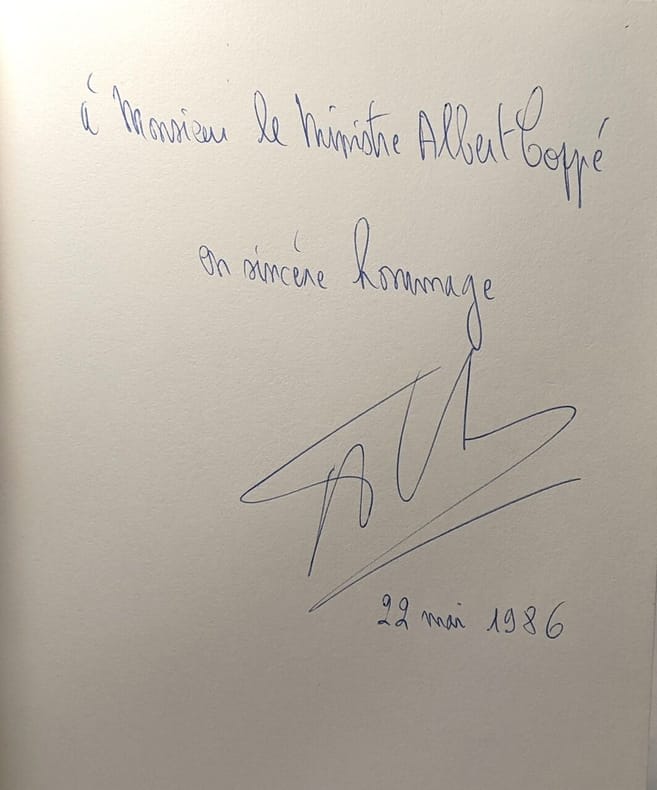 à Monsieur le Ministre Albert Coppé
en sincère hommage
22 mai 1986